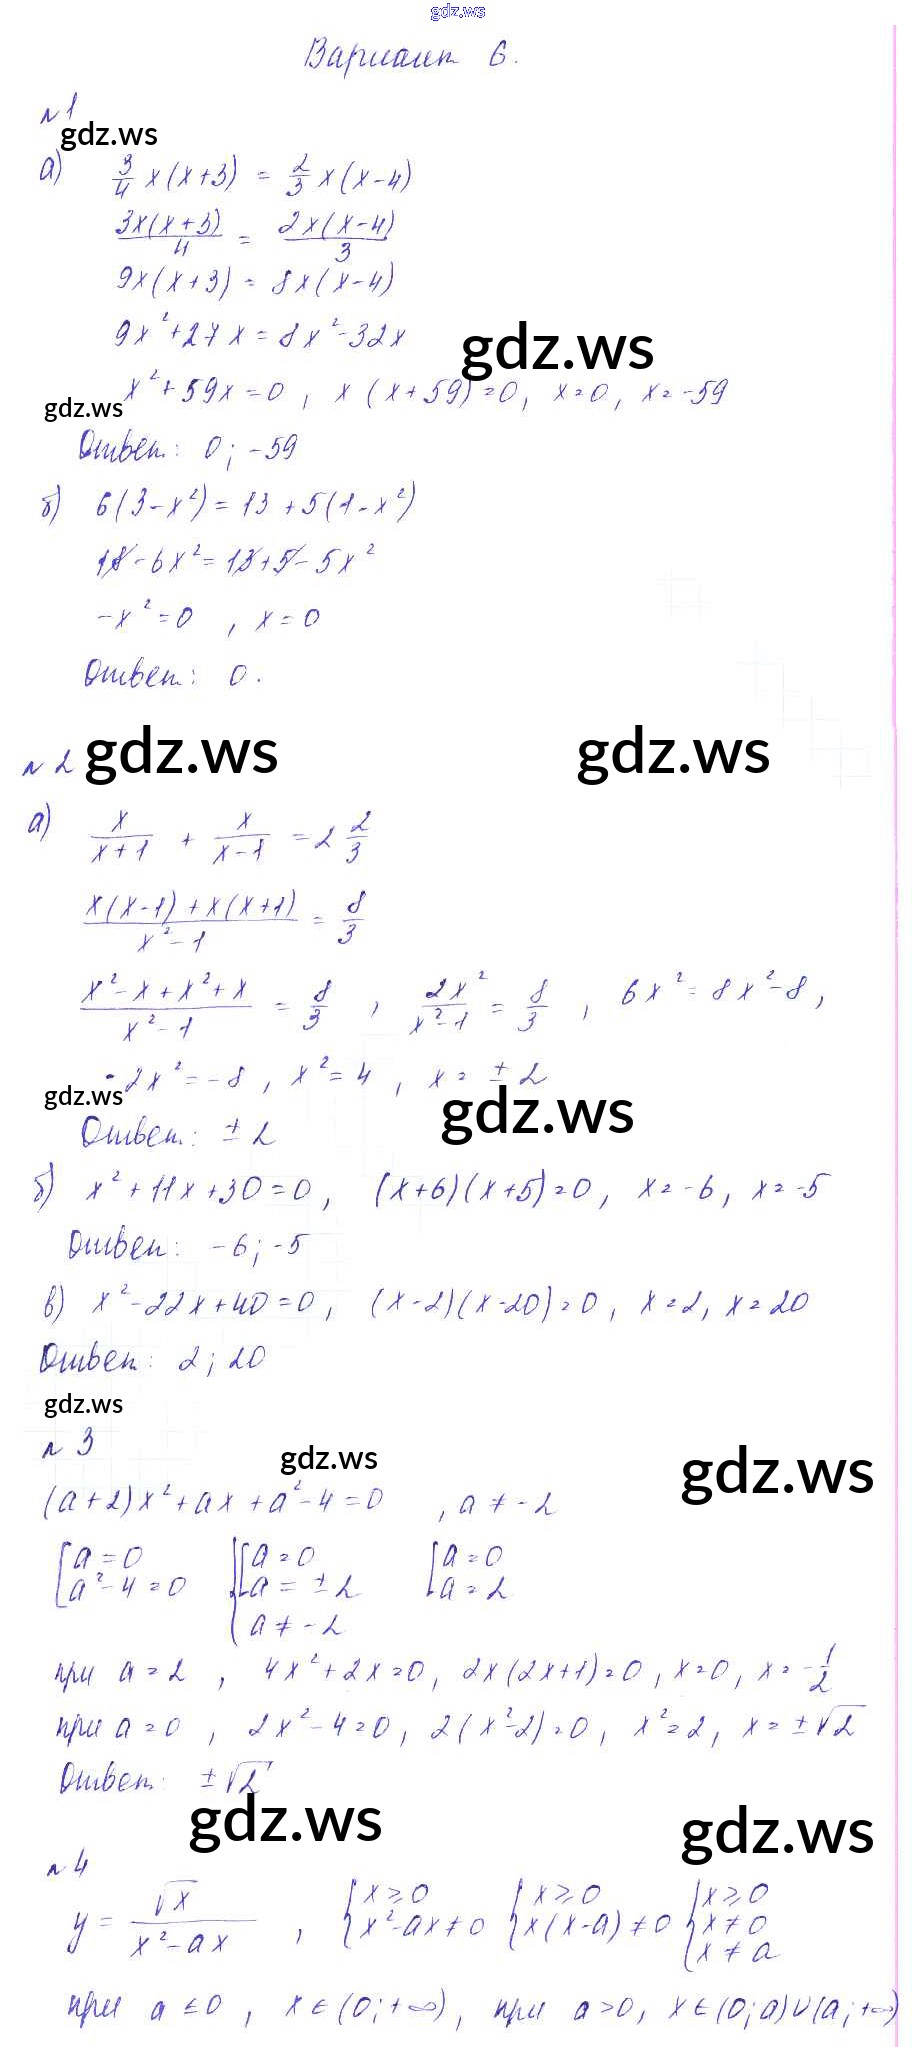 gdz.ws
Вариант 6.
№1
gdz.ws
а) 3/4 x(x+3) = 2/3 x(x-4)
3x(x+3)/4 = 2x(x-4)/3
9x(x+3) = 8x(x-4)
9x²+27x = 8x²-32x
gdz.ws
x²+59x=0, x(x+59)=0, x=0, x=-59
gdz.ws
Ответ: 0; -59
б) 6(3-x²)=13+5(1-x²)
18-6x²=13+5-5x²
-x²=0, x=0
Ответ: 0.
№2 gdz.ws gdz.ws
а) x/(x+1) + x/(x-1) = 2 2/3
(x(x-1)+x(x+1))/(x²-1) = 8/3
(x²-x+x²+x)/(x²-1) = 8/3, 2x²/(x²-1) = 8/3, 6x²=8x²-8,
-2x²=-8, x²=4, x=±2
gdz.ws gdz.ws
Ответ: ±2
б) x²+11x+30=0, (x+6)(x+5)=0, x=-6, x=-5
Ответ: -6; -5
в) x²-22x+40=0, (x-2)(x-20)=0, x=2, x=20
Ответ: 2; 20
gdz.ws
№3
gdz.ws gdz.ws
(a+2)x²+ax+a²-4=0, a≠-2
[a=0 {[a=0 [a=0
a²-4=0 a=±2 a=2
a≠-2
при a=2, 4x²+2x=0, 2x(2x+1)=0, x=0, x=-1/2
при a=0, 2x²-4=0, 2(x²-2)=0, x²=2, x=±√2
Ответ: ±√2
gdz.ws gdz.ws
№4
y = √x/(x²-ax), {x≥0 {x≥0 {x≥0
x²-ax≠0 x(x-a)≠0 x≠0
x≠a
при a≤0, x∈(0;+∞), при a>0, x∈(0;a)∪(a;+∞)